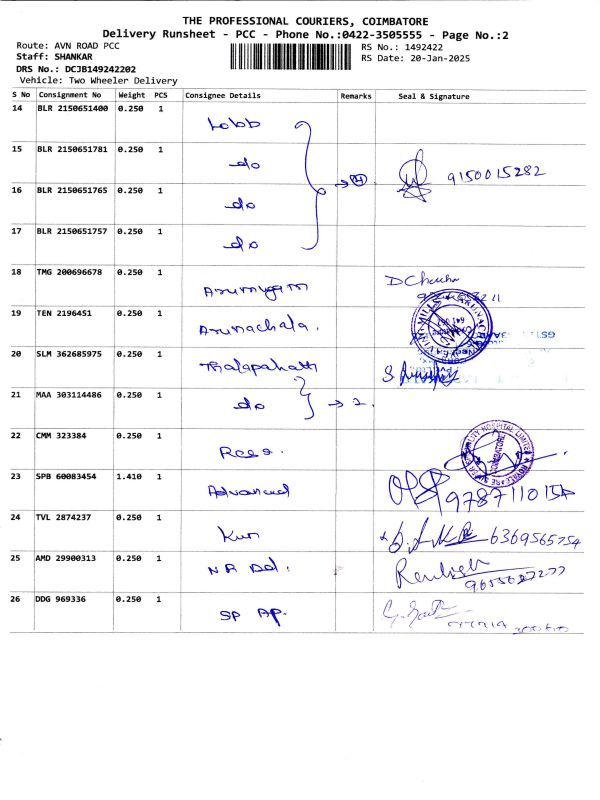 THE PROFESSIONAL COURIERS, COIMBATORE
Delivery Runsheet - PCC - Phone No.:0422-3505555 - Page No.:2
Route: AVN ROAD PCC
RS No.: 1492422
Staff: SHANKAR
RS Date: 20-Jan-2025
DRS No.: DCJB149242202
Vehicle: Two Wheeler Delivery
S No Consignment No Weight PCS Consignee Details Remarks Seal & Signature
14 BLR 2150651400 0.250 1
15 BLR 2150651781 0.250 1 do
4 9150015282
16 BLR 2150651765 0.250 1 do
17 BLR 2150651757 0.250 1 do
18 TMG 200696678 0.250 1 Arumugam
19 TEN 2196451 0.250 1 Arunachala.
20 SLM 362685975 0.250 1
21 MAA 303114486 0.250 1 do 2.
22 CMM 323384 0.250 1
23 SPB 60083454 1.410 1 Advanced
24 TVL 2874237 0.250 1 6369565754
25 AMD 29900313 0.250 1
26 DDG 969336 0.250 1 SP AP.